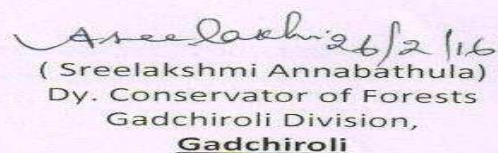 Asreelakshmi 26/2/16
( Sreelakshmi Annabathula)
Dy. Conservator of Forests
Gadchiroli Division,
Gadchiroli